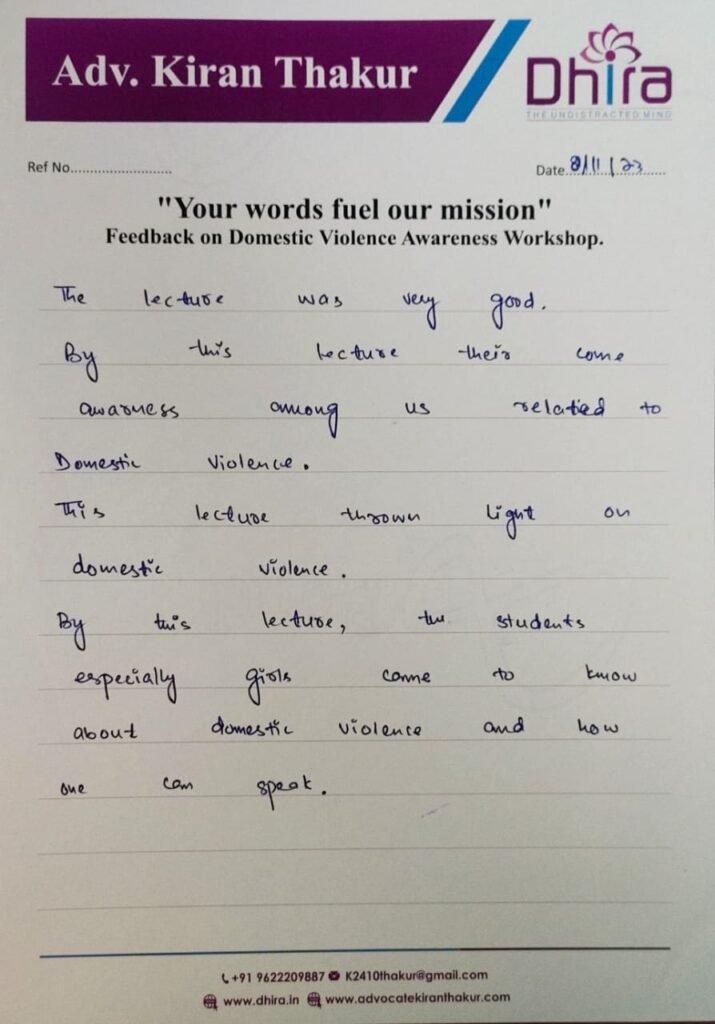 Adv. Kiran Thakur
Dhira
THE UNDISTRACTED MIND
Ref No..........................
Date..8/11/23......
"Your words fuel our mission"
Feedback on Domestic Violence Awareness Workshop.
The lecture was very good.
By this lecture their come
awarness among us related to
Domestic Violence.
This lecture thrown light on
domestic violence.
By this lecture, the students
especially girls came to know
about domestic violence and how
one can speak.
+91 9622209887 K2410thakur@gmail.com
www.dhira.in www.advocatekiranthakur.com